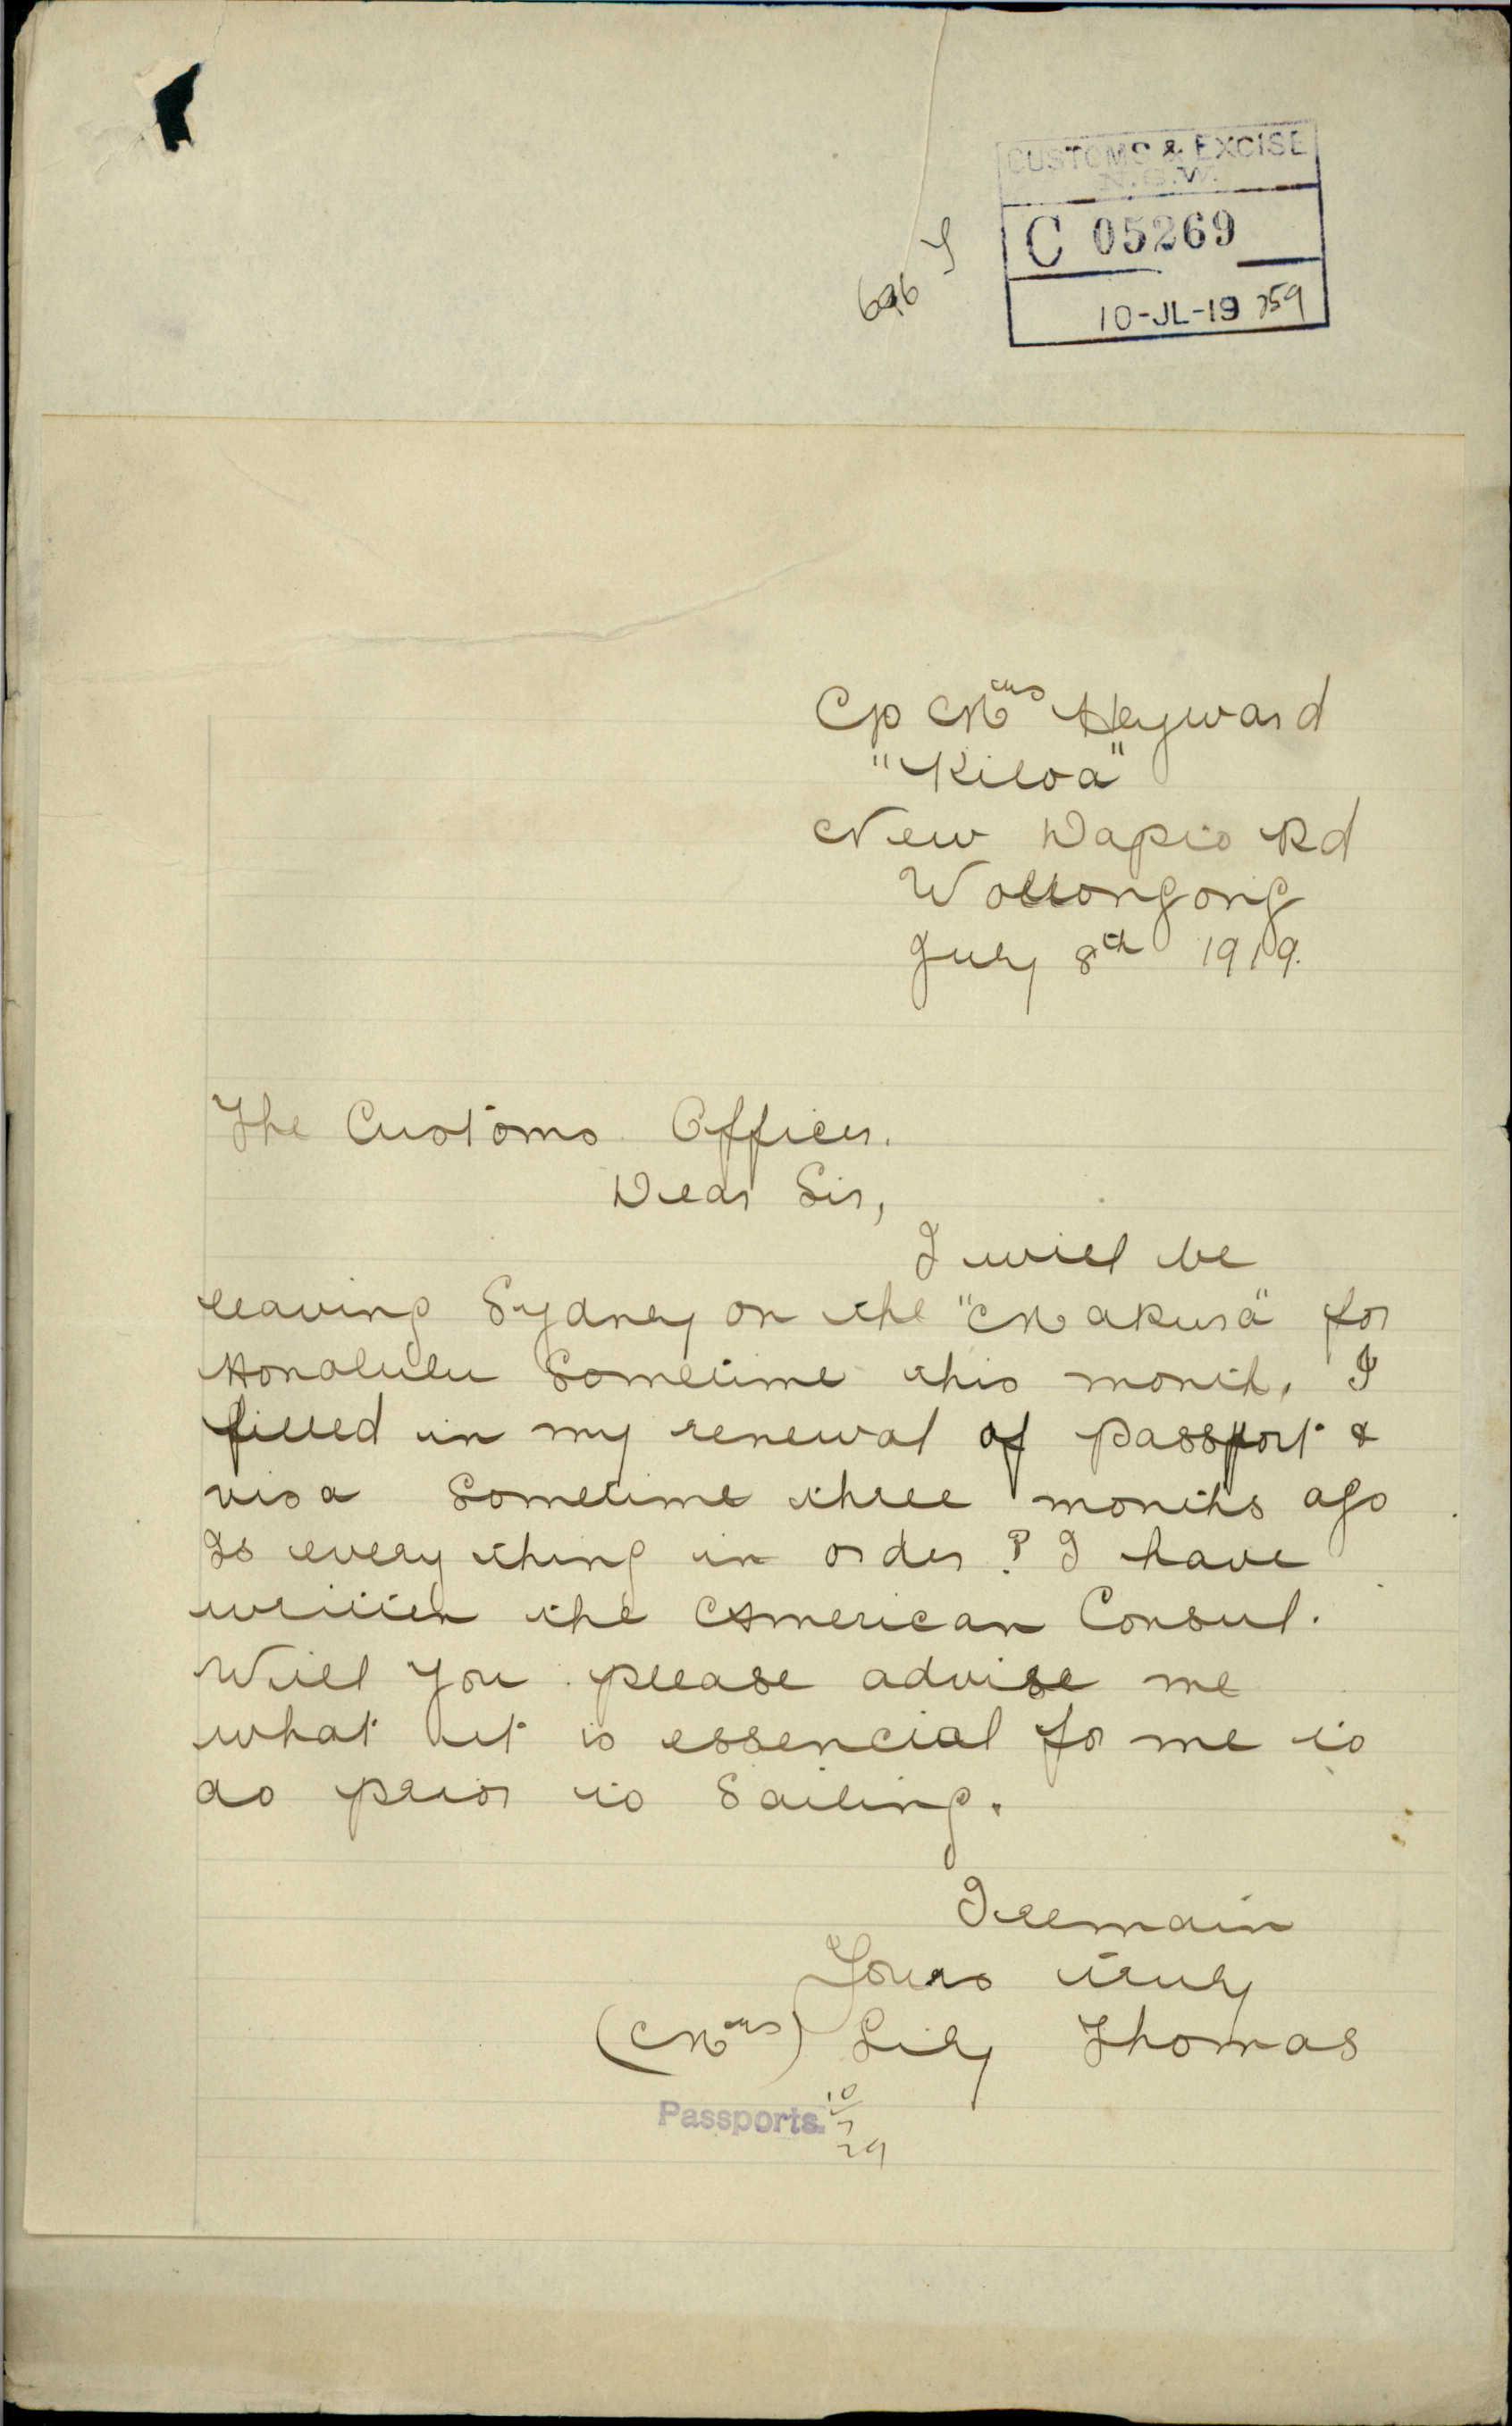 CUSTOMS & EXCISE
N.S.W.
C 05269
10-JL-19
696
C/o Mrs Heyward
"Kiloa"
New Dapto Rd
Wollongong
July 8th 1919.
The Customs Officer.
Dear Sir,
I will be
leaving Sydney on the "Makura" for
Honolulu Sometime this month. I
filled in my renewal of passport &
visa sometime three months ago
Is every thing in order? I have
written the American Consul.
Will you please advise me
what it is essencial fo me to
do prior to Sailing.
I remain
Yours truly
(Mrs) Lily Thomas
Passports.